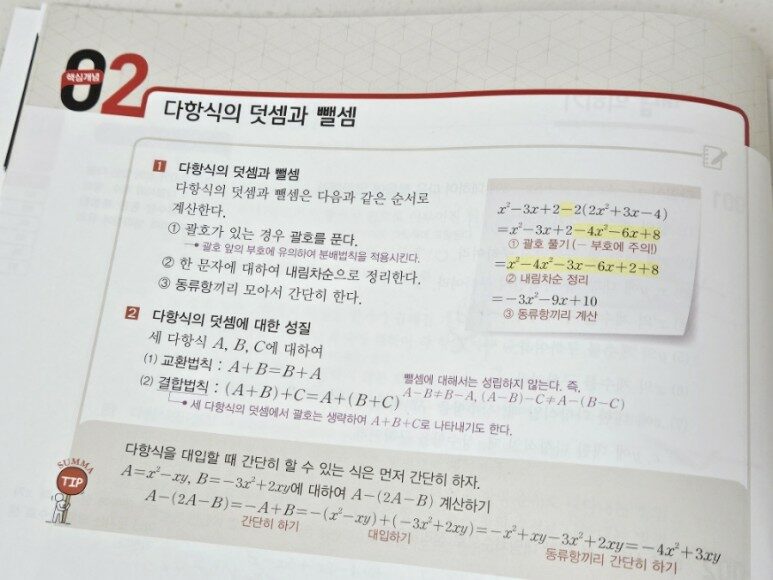 핵심개념
02
다항식의 덧셈과 뺄셈
1 다항식의 덧셈과 뺄셈
다항식의 덧셈과 뺄셈은 다음과 같은 순서로
계산한다.
① 괄호가 있는 경우 괄호를 푼다.
괄호 앞의 부호에 유의하여 분배법칙을 적용시킨다.
② 한 문자에 대하여 내림차순으로 정리한다.
③ 동류항끼리 모아서 간단히 한다.
x²-3x+2-2(2x²+3x-4)
=x²-3x+2-4x²-6x+8
① 괄호 풀기(- 부호에 주의!)
=x²-4x²-3x-6x+2+8
② 내림차순 정리
=-3x²-9x+10
③ 동류항끼리 계산
2 다항식의 덧셈에 대한 성질
세 다항식 A, B, C에 대하여
(1) 교환법칙 : A+B=B+A
(2) 결합법칙 : (A+B)+C=A+(B+C)
세 다항식의 덧셈에서 괄호는 생략하여 A+B+C로 나타내기도 한다.
뺄셈에 대해서는 성립하지 않는다. 즉,
A-B≠B-A, (A-B)-C≠A-(B-C)
SUMMA
TIP
다항식을 대입할 때 간단히 할 수 있는 식은 먼저 간단히 하자.
A=x²-xy, B=-3x²+2xy에 대하여 A-(2A-B) 계산하기
A-(2A-B)=-A+B=-(x²-xy)+(-3x²+2xy)=-x²+xy-3x²+2xy=-4x²+3xy
간단히 하기 대입하기 동류항끼리 간단히 하기